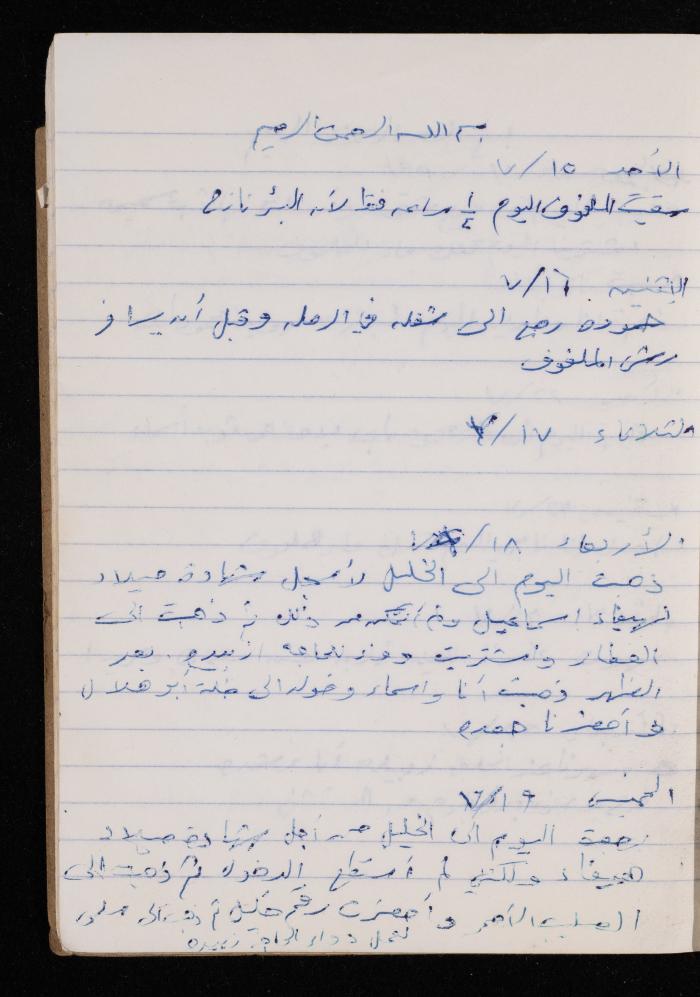 بسم الله الرحمن الرحيم
الأحد ٧/١٥
سقيت الملفوف اليوم ١/٤ ساعه فقط لأن البئر نازح
الإثنين ٧/١٦
حموده رجع الى شغله في الرمله وقبل أن يسافر
رش الملفوف
الثلاثاء ٧/١٧
الأربعاء ٧/١٨
ذهبت اليوم الى الخليل لأسجل شهادة ميلاد
لهيفاء اسماعيل ولم أتمكن من ذلك ثم ذهبت الى
واشتريت دواء للحاجه زبيده. بعد
الظهر ذهبت أنا واسماء وخوله الى خلة أبو هلال
أحضرنا
الخميس ٧/١٩
رجعت اليوم الى الخليل من أجل شهادة ميلاد
هيفاء ولكني لم أستطع الدخول ثم ذهبت الى
الصليب الأحمر وأحضرت رقم خليل ثم ذهبت الى
دواء الحاجة زبيده